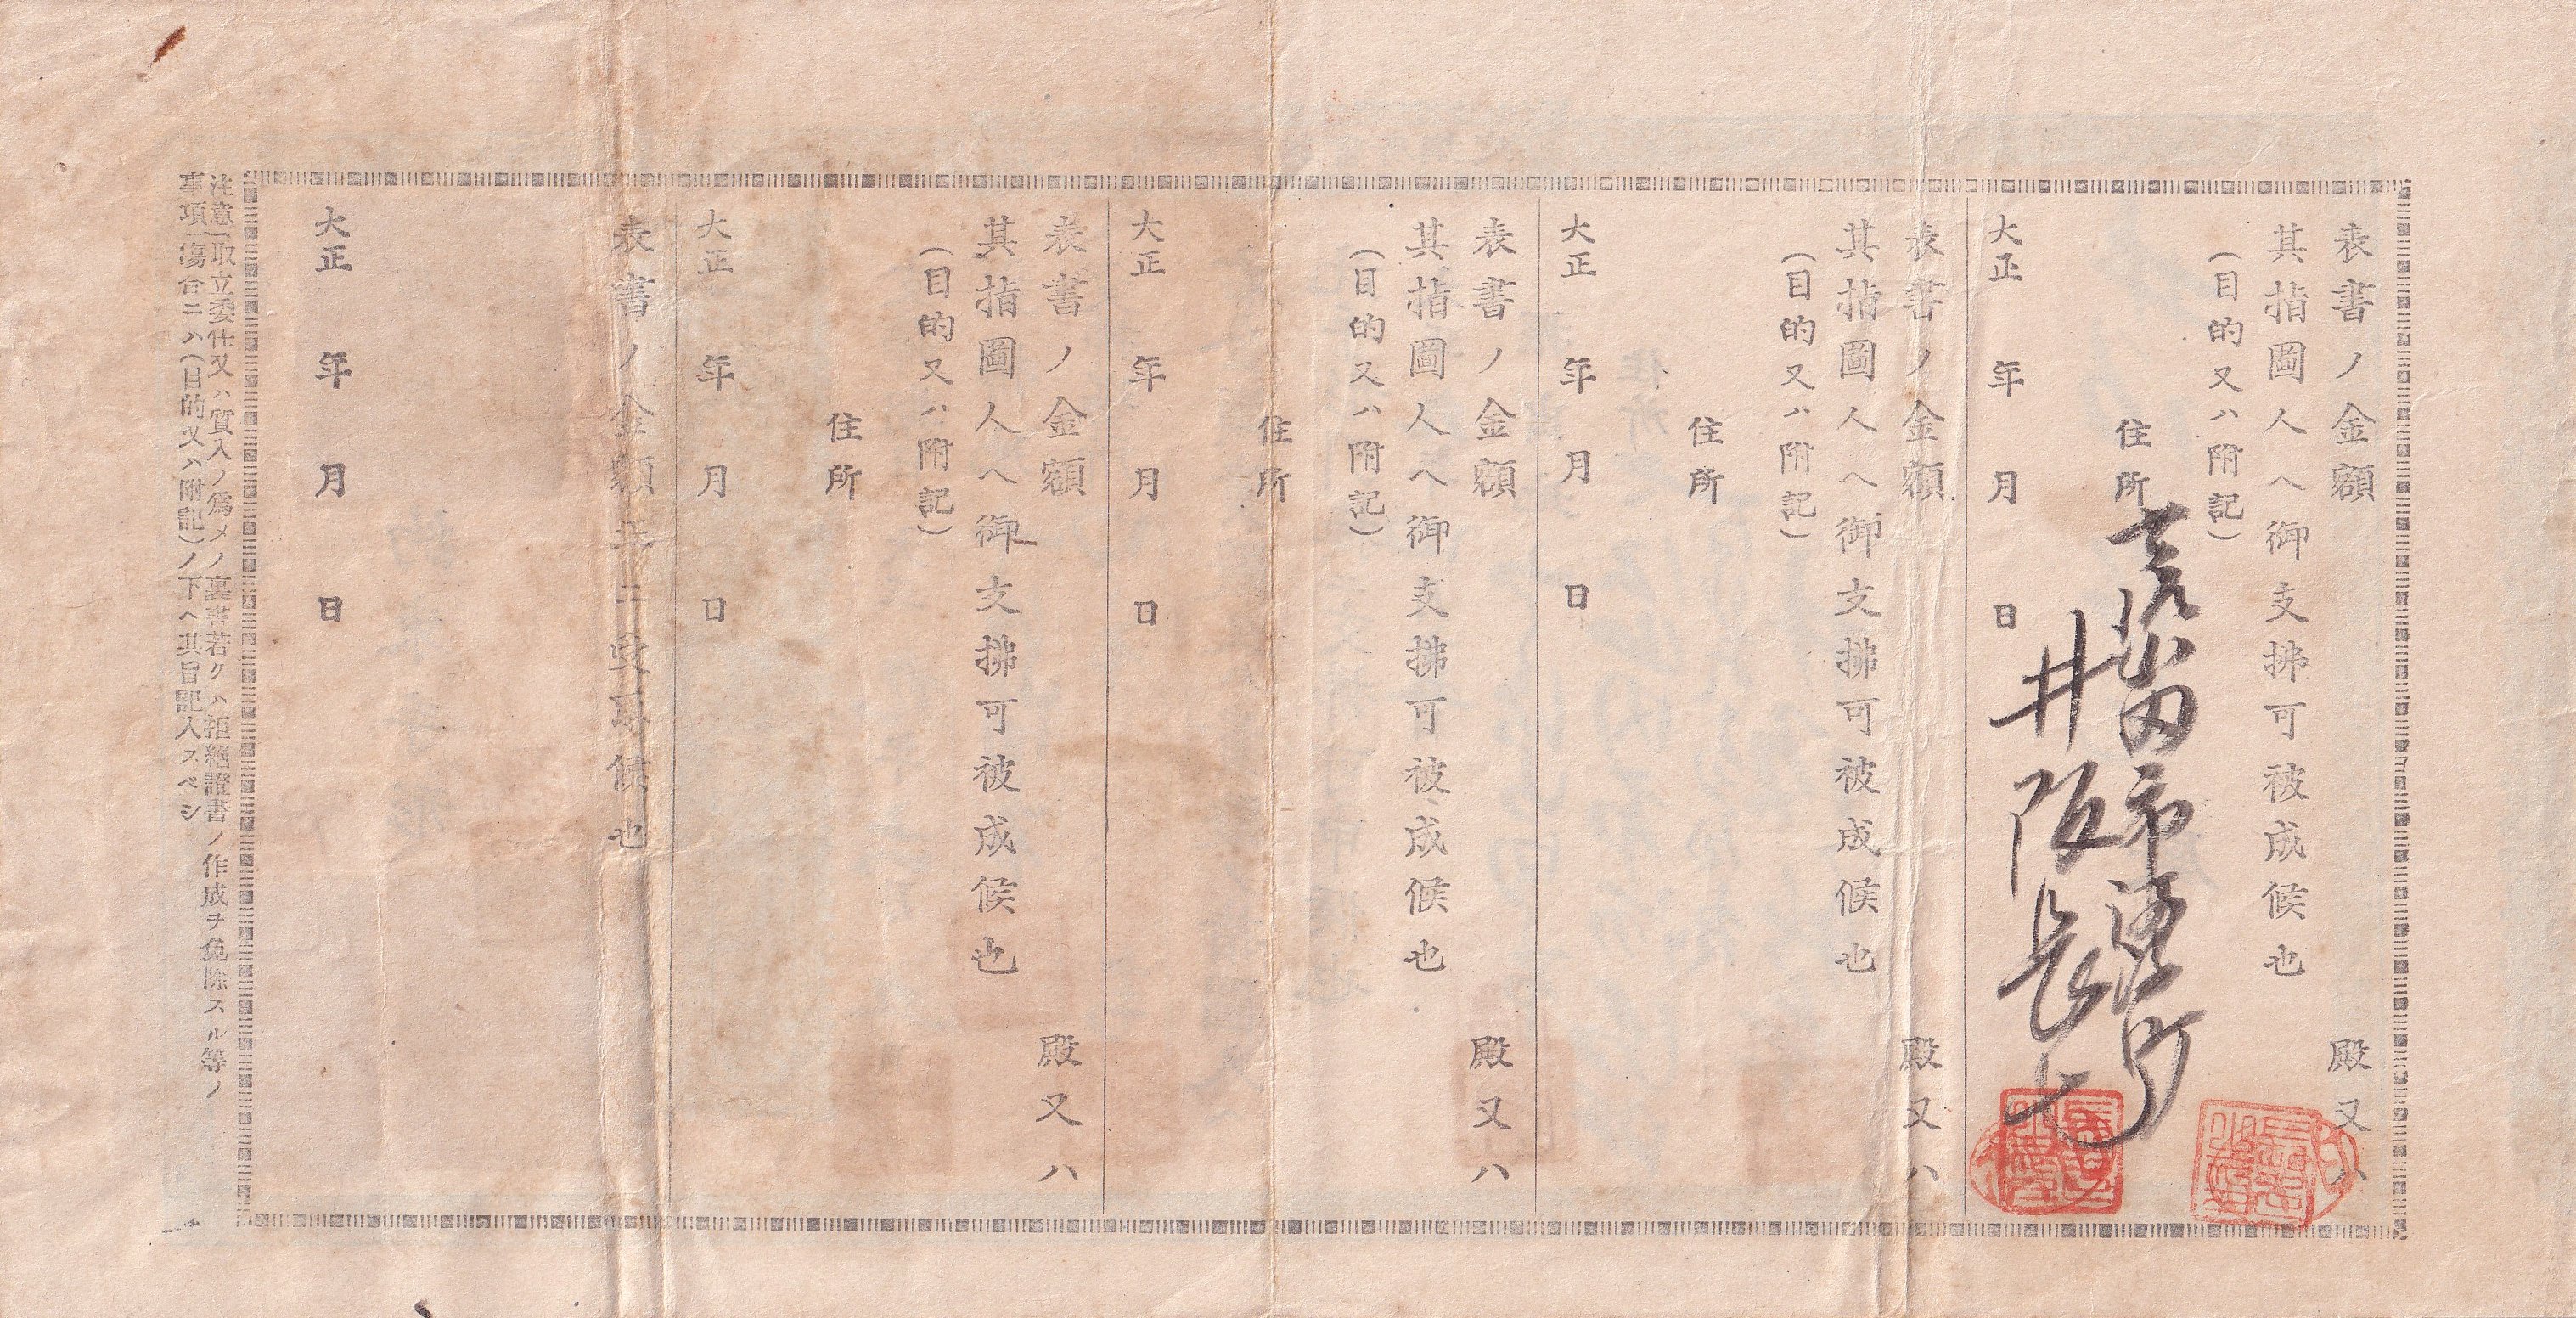 表書ノ金額　殿又ハ
其指圖人ヘ御支拂可被成候也
（目的又ハ附記）
住所
井阪長七
大正　年　月　日
表書ノ金額　殿又ハ
其指圖人ヘ御支拂可被成候也
（目的又ハ附記）
住所
大正　年　月　日
表書ノ金額　殿又ハ
其指圖人ヘ御支拂可被成候也
（目的又ハ附記）
住所
大正　年　月　日
表書ノ金額　殿又ハ
其指圖人ヘ御支拂可被成候也
（目的又ハ附記）
住所
大正　年　月　日
表書ノ金額正ニ受取候也
大正　年　月　日
注意｜取立委任又ハ質入ノ爲メノ裏書若クハ拒絕證書ノ作成ヲ免除スル等ノ
事項｜場合ニハ（目的又ハ附記）ノ下ヘ其旨記入スベシ